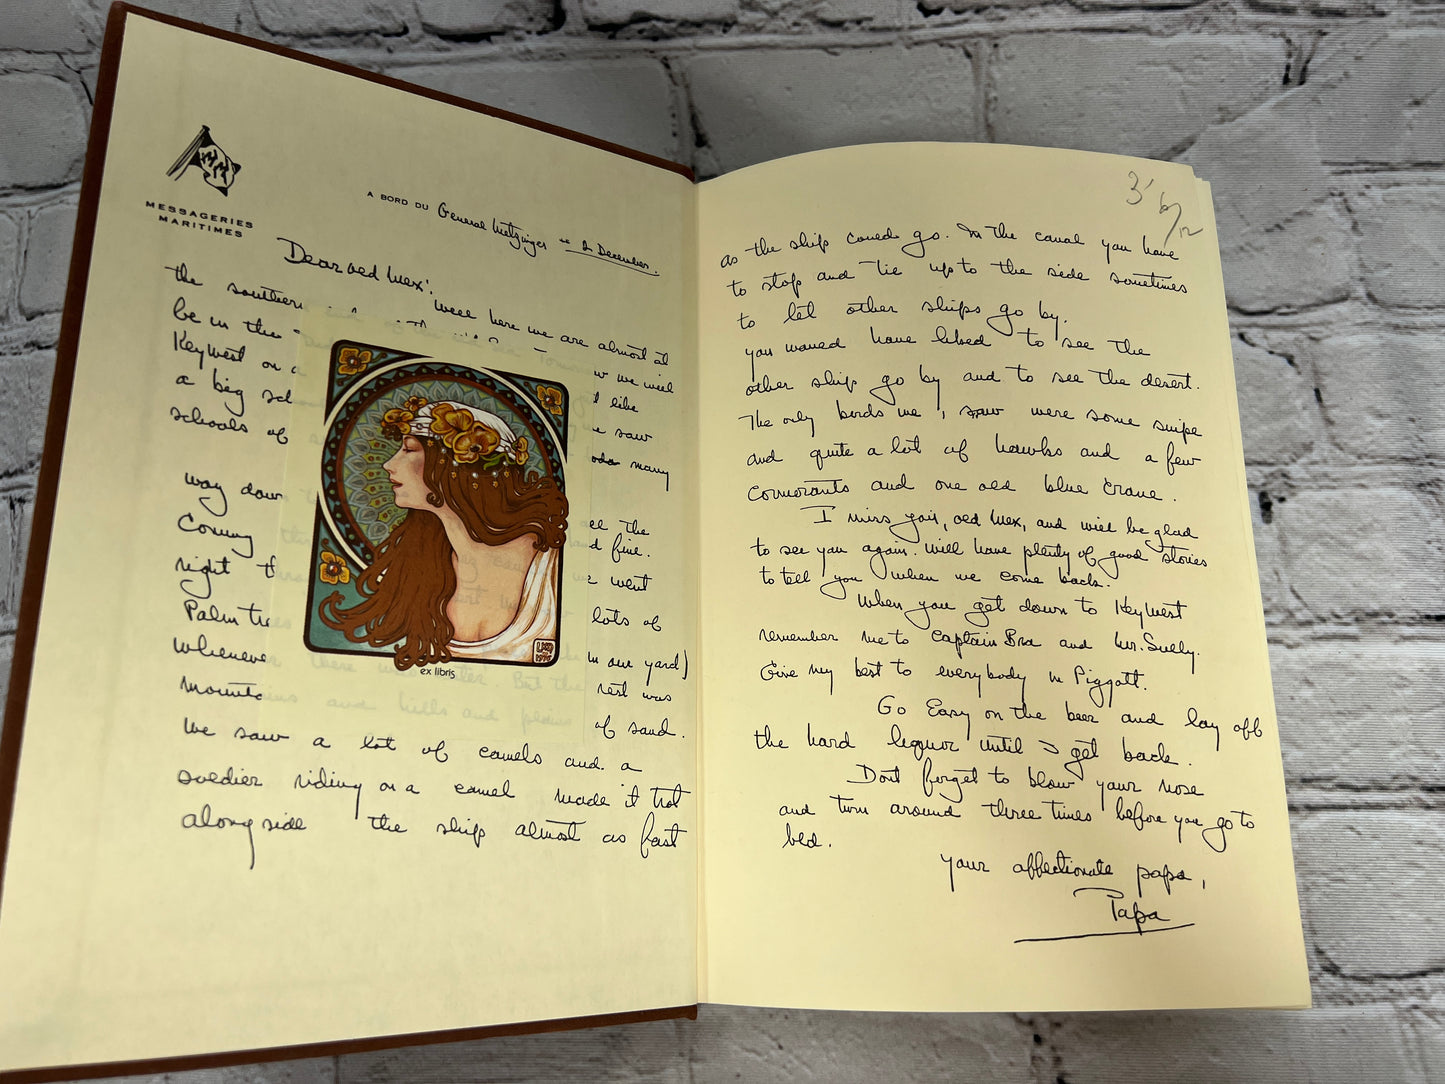 MESSAGERIES
MARITIMES
A BORD DU General Metzinger -- 2 December.
Dear old Mex: Well here we are almost at
the southern
be in the w we will
Key West on a like
a big sch e saw
schools of many
way down ll the
Coming d fine.
right th went
Palm Trees lots of
Whenever there water. But the in one yard)
mountains and hills and plains rest was
of sand.
We saw a lot of camels and a
soldier riding on a camel made it trot
along side the ship almost as fast
ex libris
1975
3'6/12
as the ship could go. In the canal you have
to stop and tie up to the side sometimes
to let other ships go by.
you would have liked to see the
other ship go by and to see the desert.
The only birds we saw were some snipe
and quite a lot of hawks and a few
cormorants and one old blue crane.
I miss you, old Mex, and will be glad
to see you again. Will have plenty of good stories
to tell you when we come back.
When you get down to Key West
remember me to Captain Bra and Mr. Sully.
Give my best to everybody in Piggott.
Go Easy on the beer and lay off
the hard liquor until I get back.
Dont forget to blow your nose
and turn around three times before you go to
bed.
Your affectionate papa,
Papa